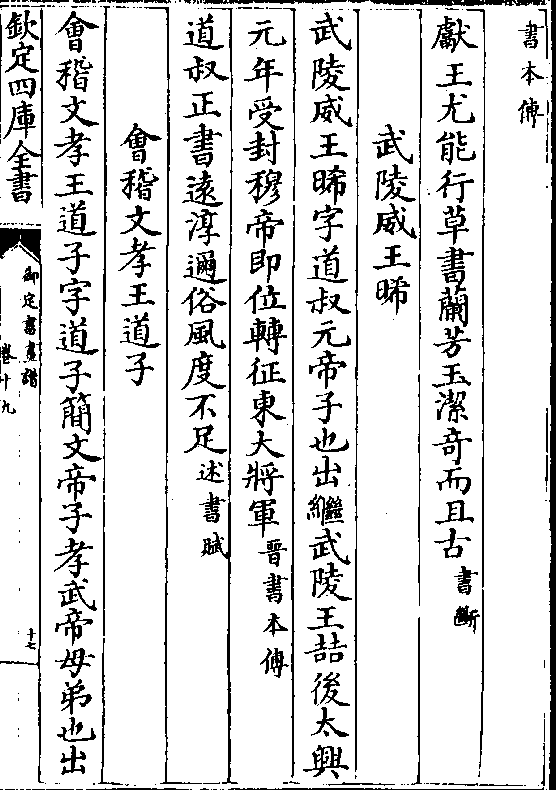 書本傳
獻王尤能行草書蘭芳玉潔竒而且古書斷
武陵威王晞
武陵威王晞字道叔元帝子也出繼武陵王喆後太興
元年受封穆帝即位轉征東大將軍晉書本傳
道叔正書遠淳邇俗風度不足述書賦
會稽文孝王道子
會稽文孝王道子字道子簡文帝子孝武帝母弟也出
欽定四庫全書
御定書畫譜
卷廿九
十七